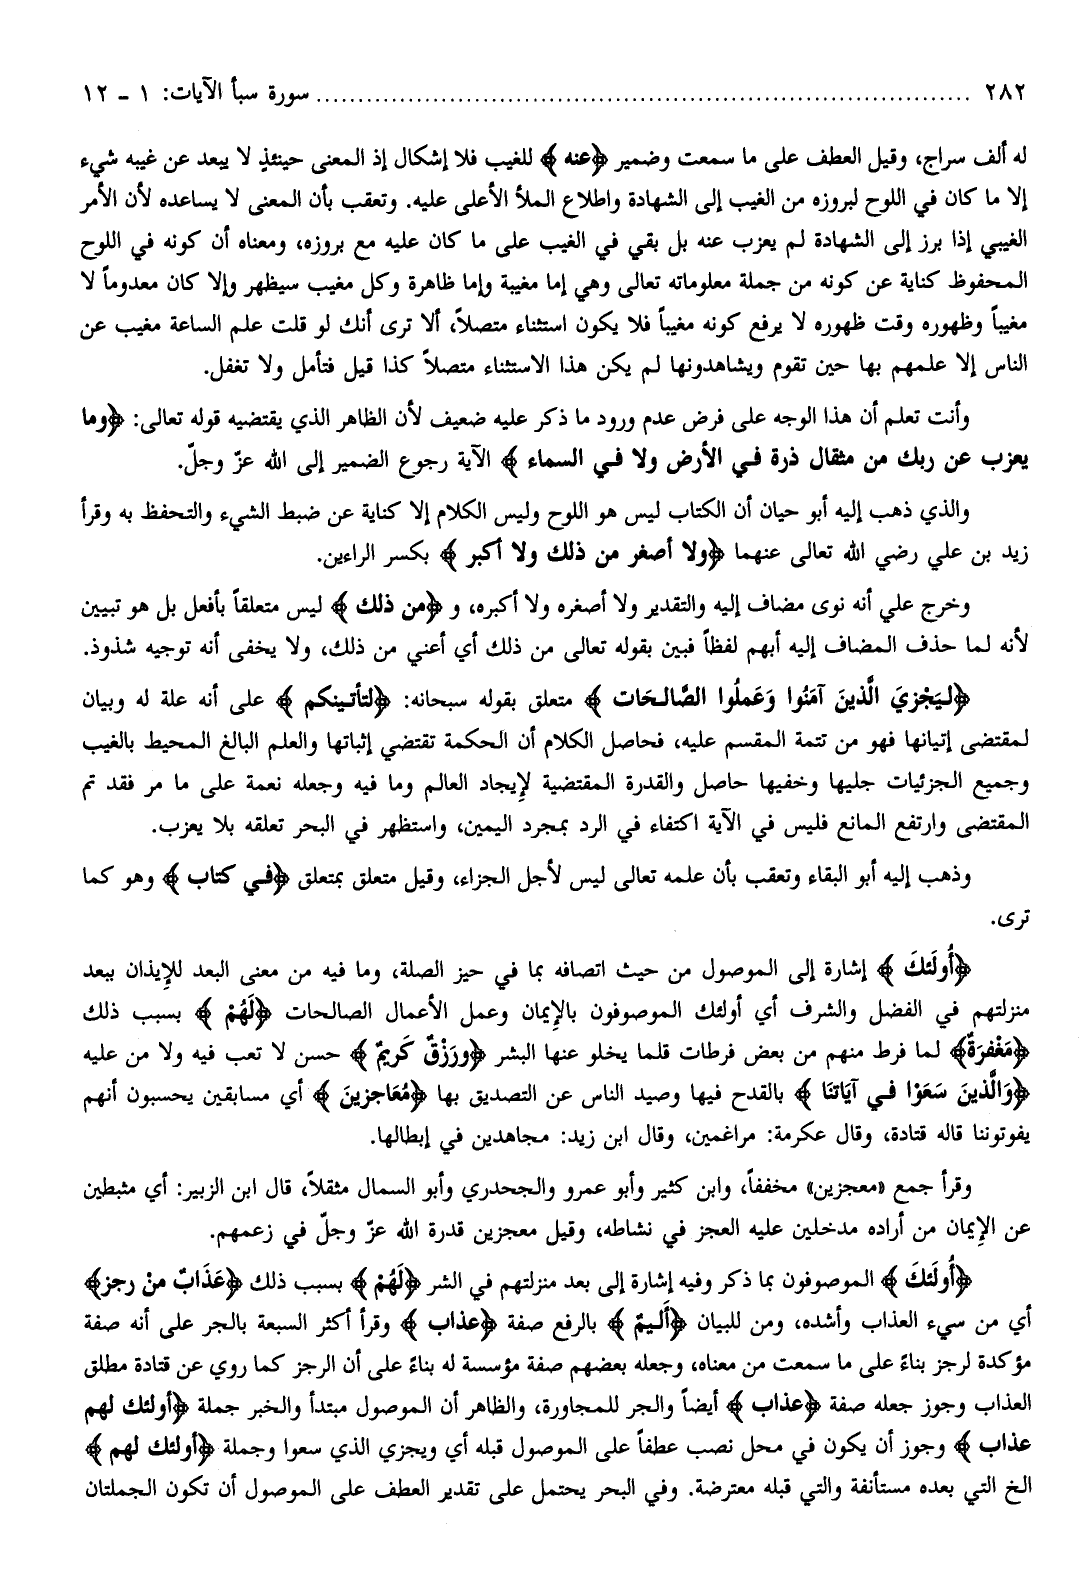 ٢٨٢ ........................................................................ سورة سبأ الآيات: ١ - ١٢
له ألف سراج، وقيل العطف على ما سمعت وضمير ﴿عنه﴾ للغيب فلا إشكال إذ المعنى حينئذٍ لا يبعد عن غيبه شيء
إلا ما كان في اللوح لبروزه من الغيب إلى الشهادة واطلاع الملأ الأعلى عليه. وتعقب بأن المعنى لا يساعده لأن الأمر
الغيبي إذا برز إلى الشهادة لم يعزب عنه بل بقي في الغيب على ما كان عليه مع بروزه، ومعناه أن كونه في اللوح
المحفوظ كناية عن كونه من جملة معلوماته تعالى وهي إما مغيبة وإما ظاهرة وكل مغيب سيظهر وإلا كان معدوماً لا
مغيباً وظهوره وقت ظهوره لا يرفع كونه مغيباً فلا يكون استثناء متصلاً، ألا ترى أنك لو قلت علم الساعة مغيب عن
الناس إلا علمهم بها حين تقوم ويشاهدونها لم يكن هذا الاستثناء متصلاً كذا قيل فتأمل ولا تغفل.
وأنت تعلم أن هذا الوجه على فرض عدم ورود ما ذكر عليه ضعيف لأن الظاهر الذي يقتضيه قوله تعالى: ﴿وما
يعزب عن ربك من مثقال ذرة في الأرض ولا في السماء﴾ الآية رجوع الضمير إلى الله عزّ وجلّ.
والذي ذهب إليه أبو حيان أن الكتاب ليس هو اللوح وليس الكلام إلا كناية عن ضبط الشيء والتحفظ به وقرأ
زيد بن علي رضي الله تعالى عنهما ﴿ولا أصغر من ذلك ولا أكبر﴾ بكسر الراءين.
وخرج علي أنه نوى مضاف إليه والتقدير ولا أصغره ولا أكبره، و ﴿من ذلك﴾ ليس متعلقاً بأفعل بل هو تبيين
لأنه لما حذف المضاف إليه أبهم لفظاً فبين بقوله تعالى من ذلك أي أعني من ذلك، ولا يخفى أنه توجيه شذوذ.
﴿لِيَجْزِيَ الَّذينَ آمَنُوا وَعَملُوا الصَّالحَات﴾ متعلق بقوله سبحانه: ﴿لتأتينكم﴾ على أنه علة له وبيان
لمقتضى إتيانها فهو من تتمة المقسم عليه، فحاصل الكلام أن الحكمة تقتضي إثباتها والعلم البالغ المحيط بالغيب
وجميع الجزئيات جليها وخفيها حاصل والقدرة المقتضية لإيجاد العالم وما فيه وجعله نعمة على ما مر فقد تم
المقتضى وارتفع المانع فليس في الآية اكتفاء في الرد بمجرد اليمين، واستظهر في البحر تعلقه بلا يعزب.
وذهب إليه أبو البقاء وتعقب بأن علمه تعالى ليس لأجل الجزاء، وقيل متعلق بمتعلق ﴿في كتاب﴾ وهو كما
ترى.
﴿أُولَئكَ﴾ إشارة إلى الموصول من حيث اتصافه بما في حيز الصلة، وما فيه من معنى البعد للإيذان ببعد
منزلتهم في الفضل والشرف أي أولئك الموصوفون بالإيمان وعمل الأعمال الصالحات ﴿لَهُمْ﴾ بسبب ذلك
﴿مَغْفرَةٌ﴾ لما فرط منهم من بعض فرطات قلما يخلو عنها البشر ﴿ورَزْقٌ كَريمٌ﴾ حسن لا تعب فيه ولا من عليه
﴿وَالَّذينَ سَعَوْا في آيَاتنَا﴾ بالقدح فيها وصيد الناس عن التصديق بها ﴿مُعَاجزينَ﴾ أي مسابقين يحسبون أنهم
يفوتوننا قاله قتادة، وقال عكرمة: مراغمين، وقال ابن زيد: مجاهدين في إبطالها.
وقرأ جمع «معجزين» مخففاً، وابن كثير وأبو عمرو والجحدري وأبو السمال مثقلاً، قال ابن الزبير: أي مثبطين
عن الإيمان من أراده مدخلين عليه العجز في نشاطه، وقيل معجزين قدرة الله عزّ وجلّ في زعمهم.
﴿أُولَئكَ﴾ الموصوفون بما ذكر وفيه إشارة إلى بعد منزلتهم في الشر ﴿لَهُمْ﴾ بسبب ذلك ﴿عَذَابٌ منْ رجز﴾
أي من سيء العذاب وأشده، ومن للبيان ﴿أَليمٌ﴾ بالرفع صفة ﴿عذاب﴾ وقرأ أكثر السبعة بالجر على أنه صفة
مؤكدة لرجز بناءً على ما سمعت من معناه، وجعله بعضهم صفة مؤسسة له بناءً على أن الرجز كما روي عن قتادة مطلق
العذاب وجوز جعله صفة ﴿عذاب﴾ أيضاً والجر للمجاورة، والظاهر أن الموصول مبتدأ والخبر جملة ﴿أولئك لهم
عذاب﴾ وجوز أن يكون في محل نصب عطفاً على الموصول قبله أي ويجزي الذي سعوا وجملة ﴿أولئك لهم﴾
الخ التي بعده مستأنفة والتي قبله معترضة. وفي البحر يحتمل على تقدير العطف على الموصول أن تكون الجملتان